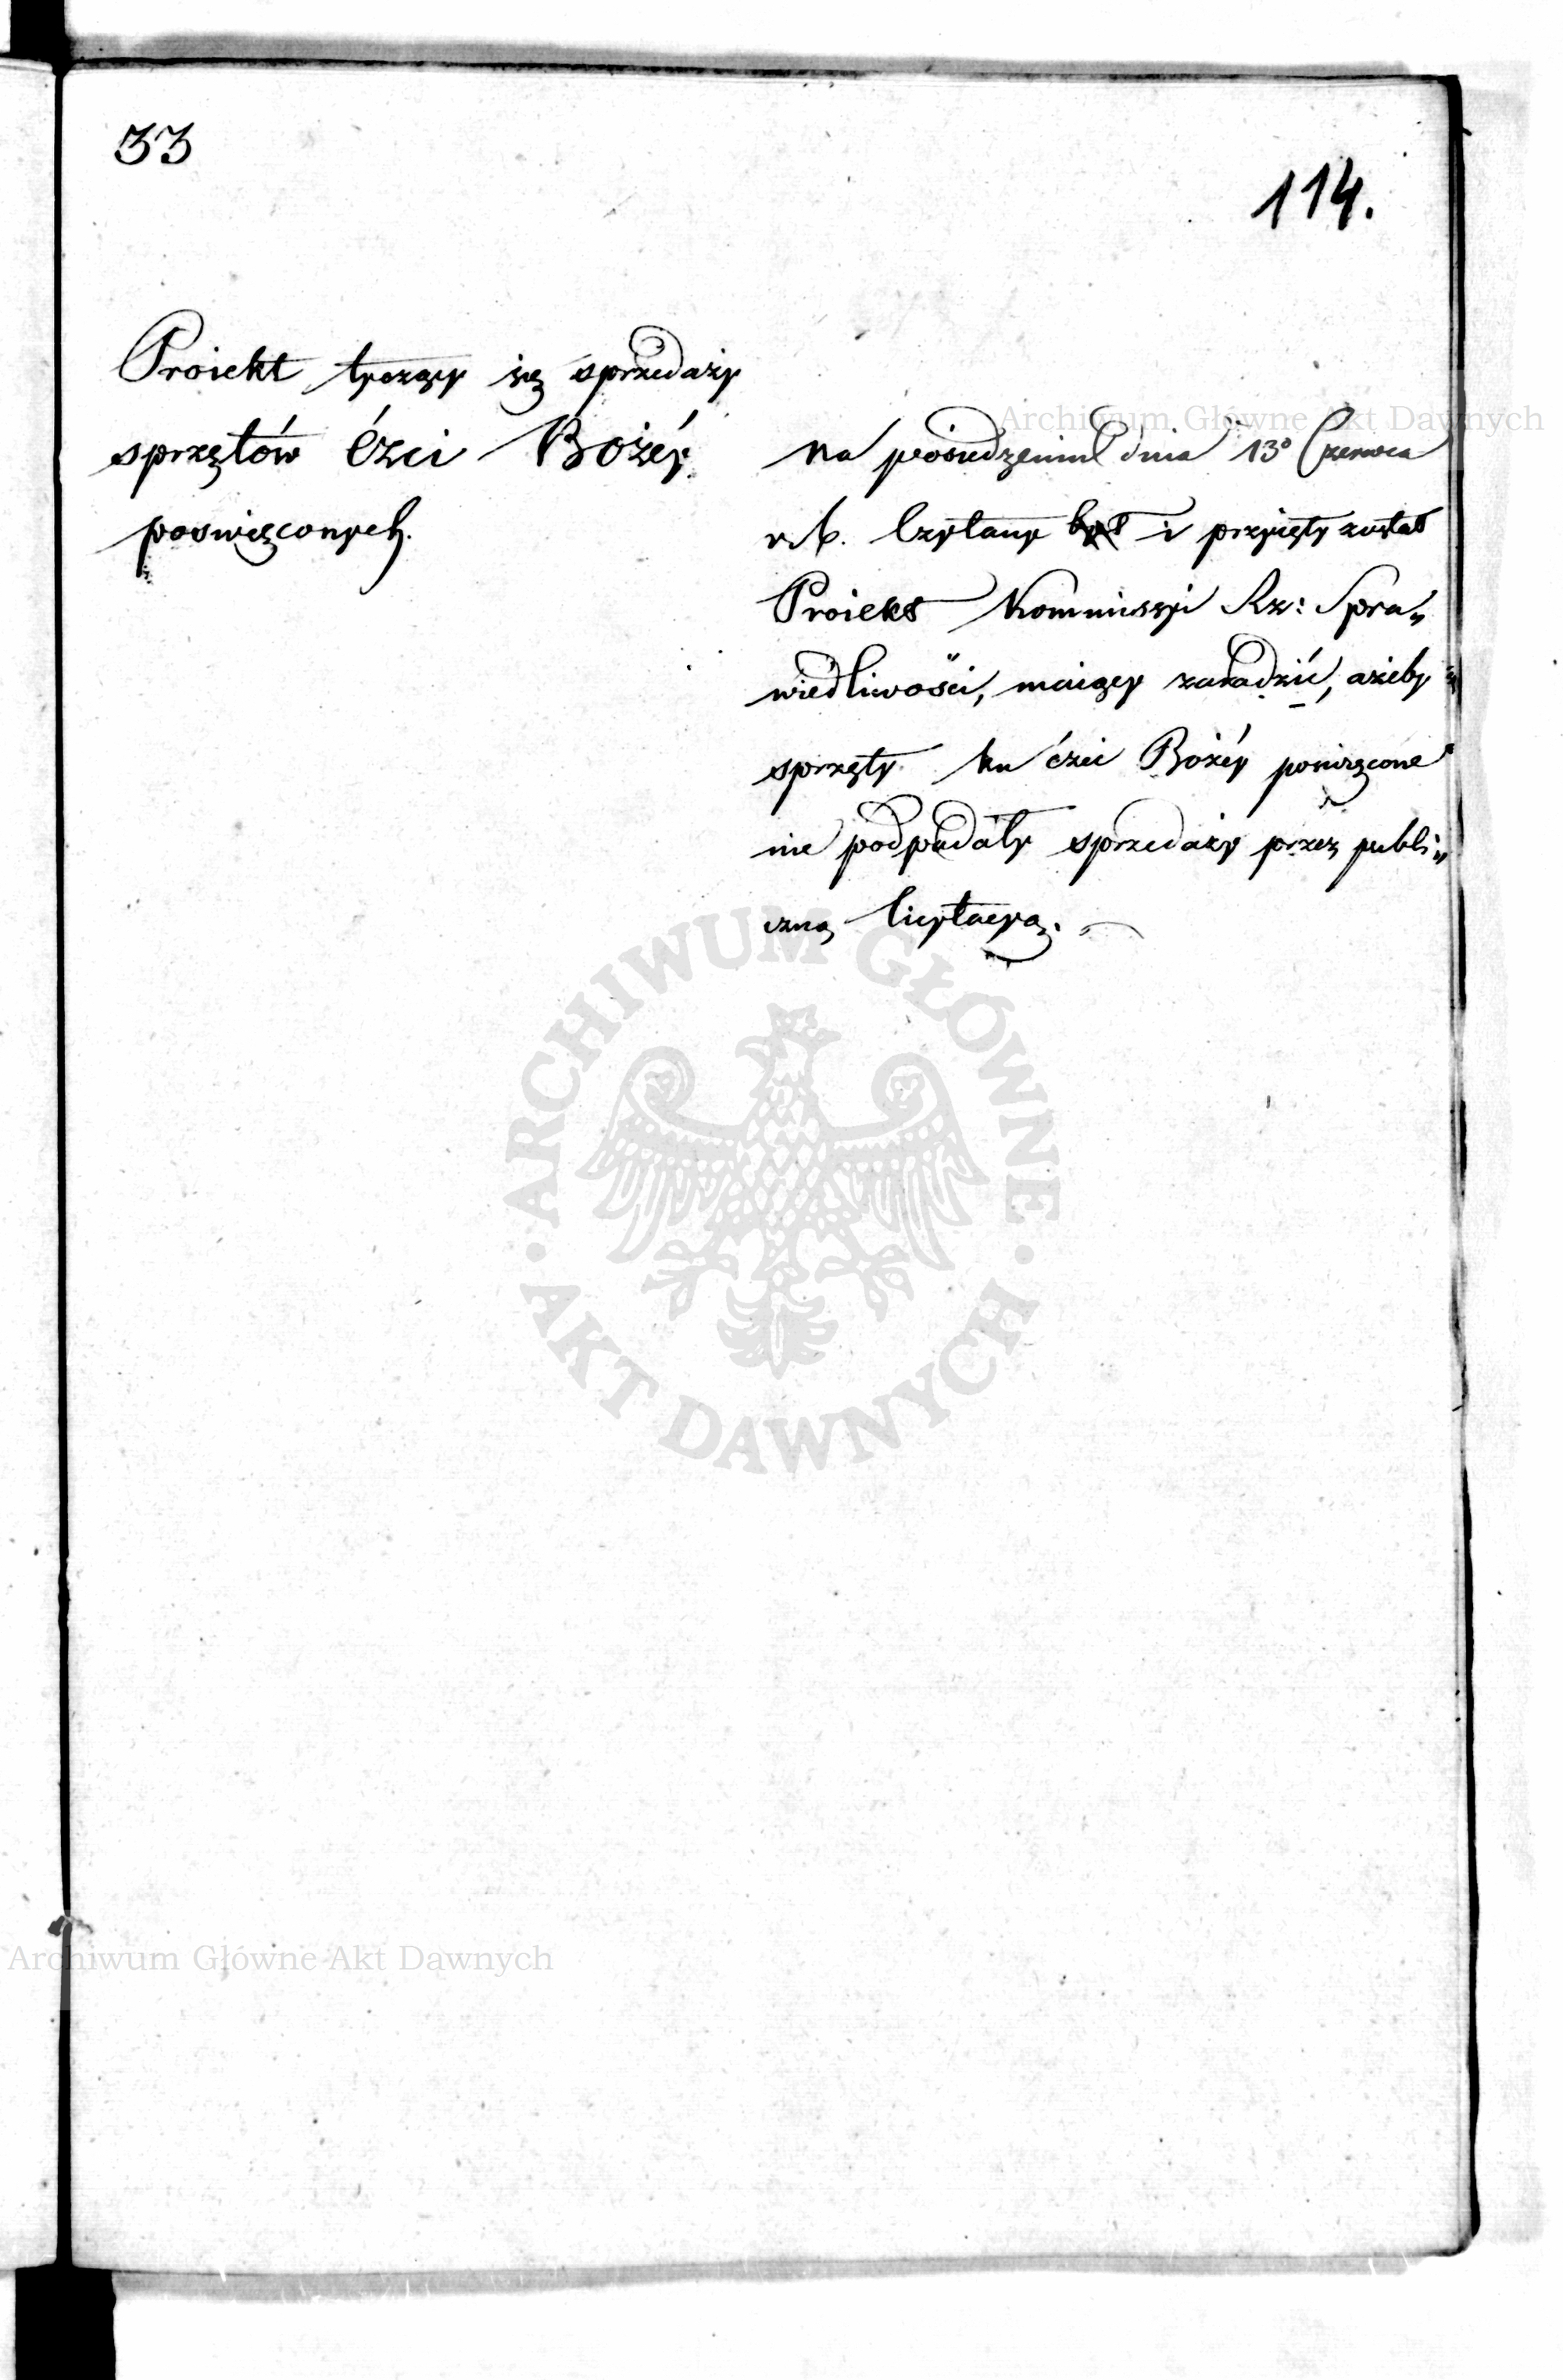 33
114.
Proiekt tyczący się sprzedaży
sprzętów czci Bożéy
poswięconych.
Na posiedzeniu dnia 13º Czerwca
r. b. Czytany był i przyięty został
Proiekt Kommissyi Rz: Spra„
wiedliwości, maiący zaradzić, ażeby
sprzęty ku czci Bożéy poswięcone
nie podpadały sprzedaży przez publi„
czną licytacyą.
Archiwum Główne Akt Dawnych
ARCHIWUM GŁÓWNE
AKT DAWNYCH
Archiwum Główne Akt Dawnych